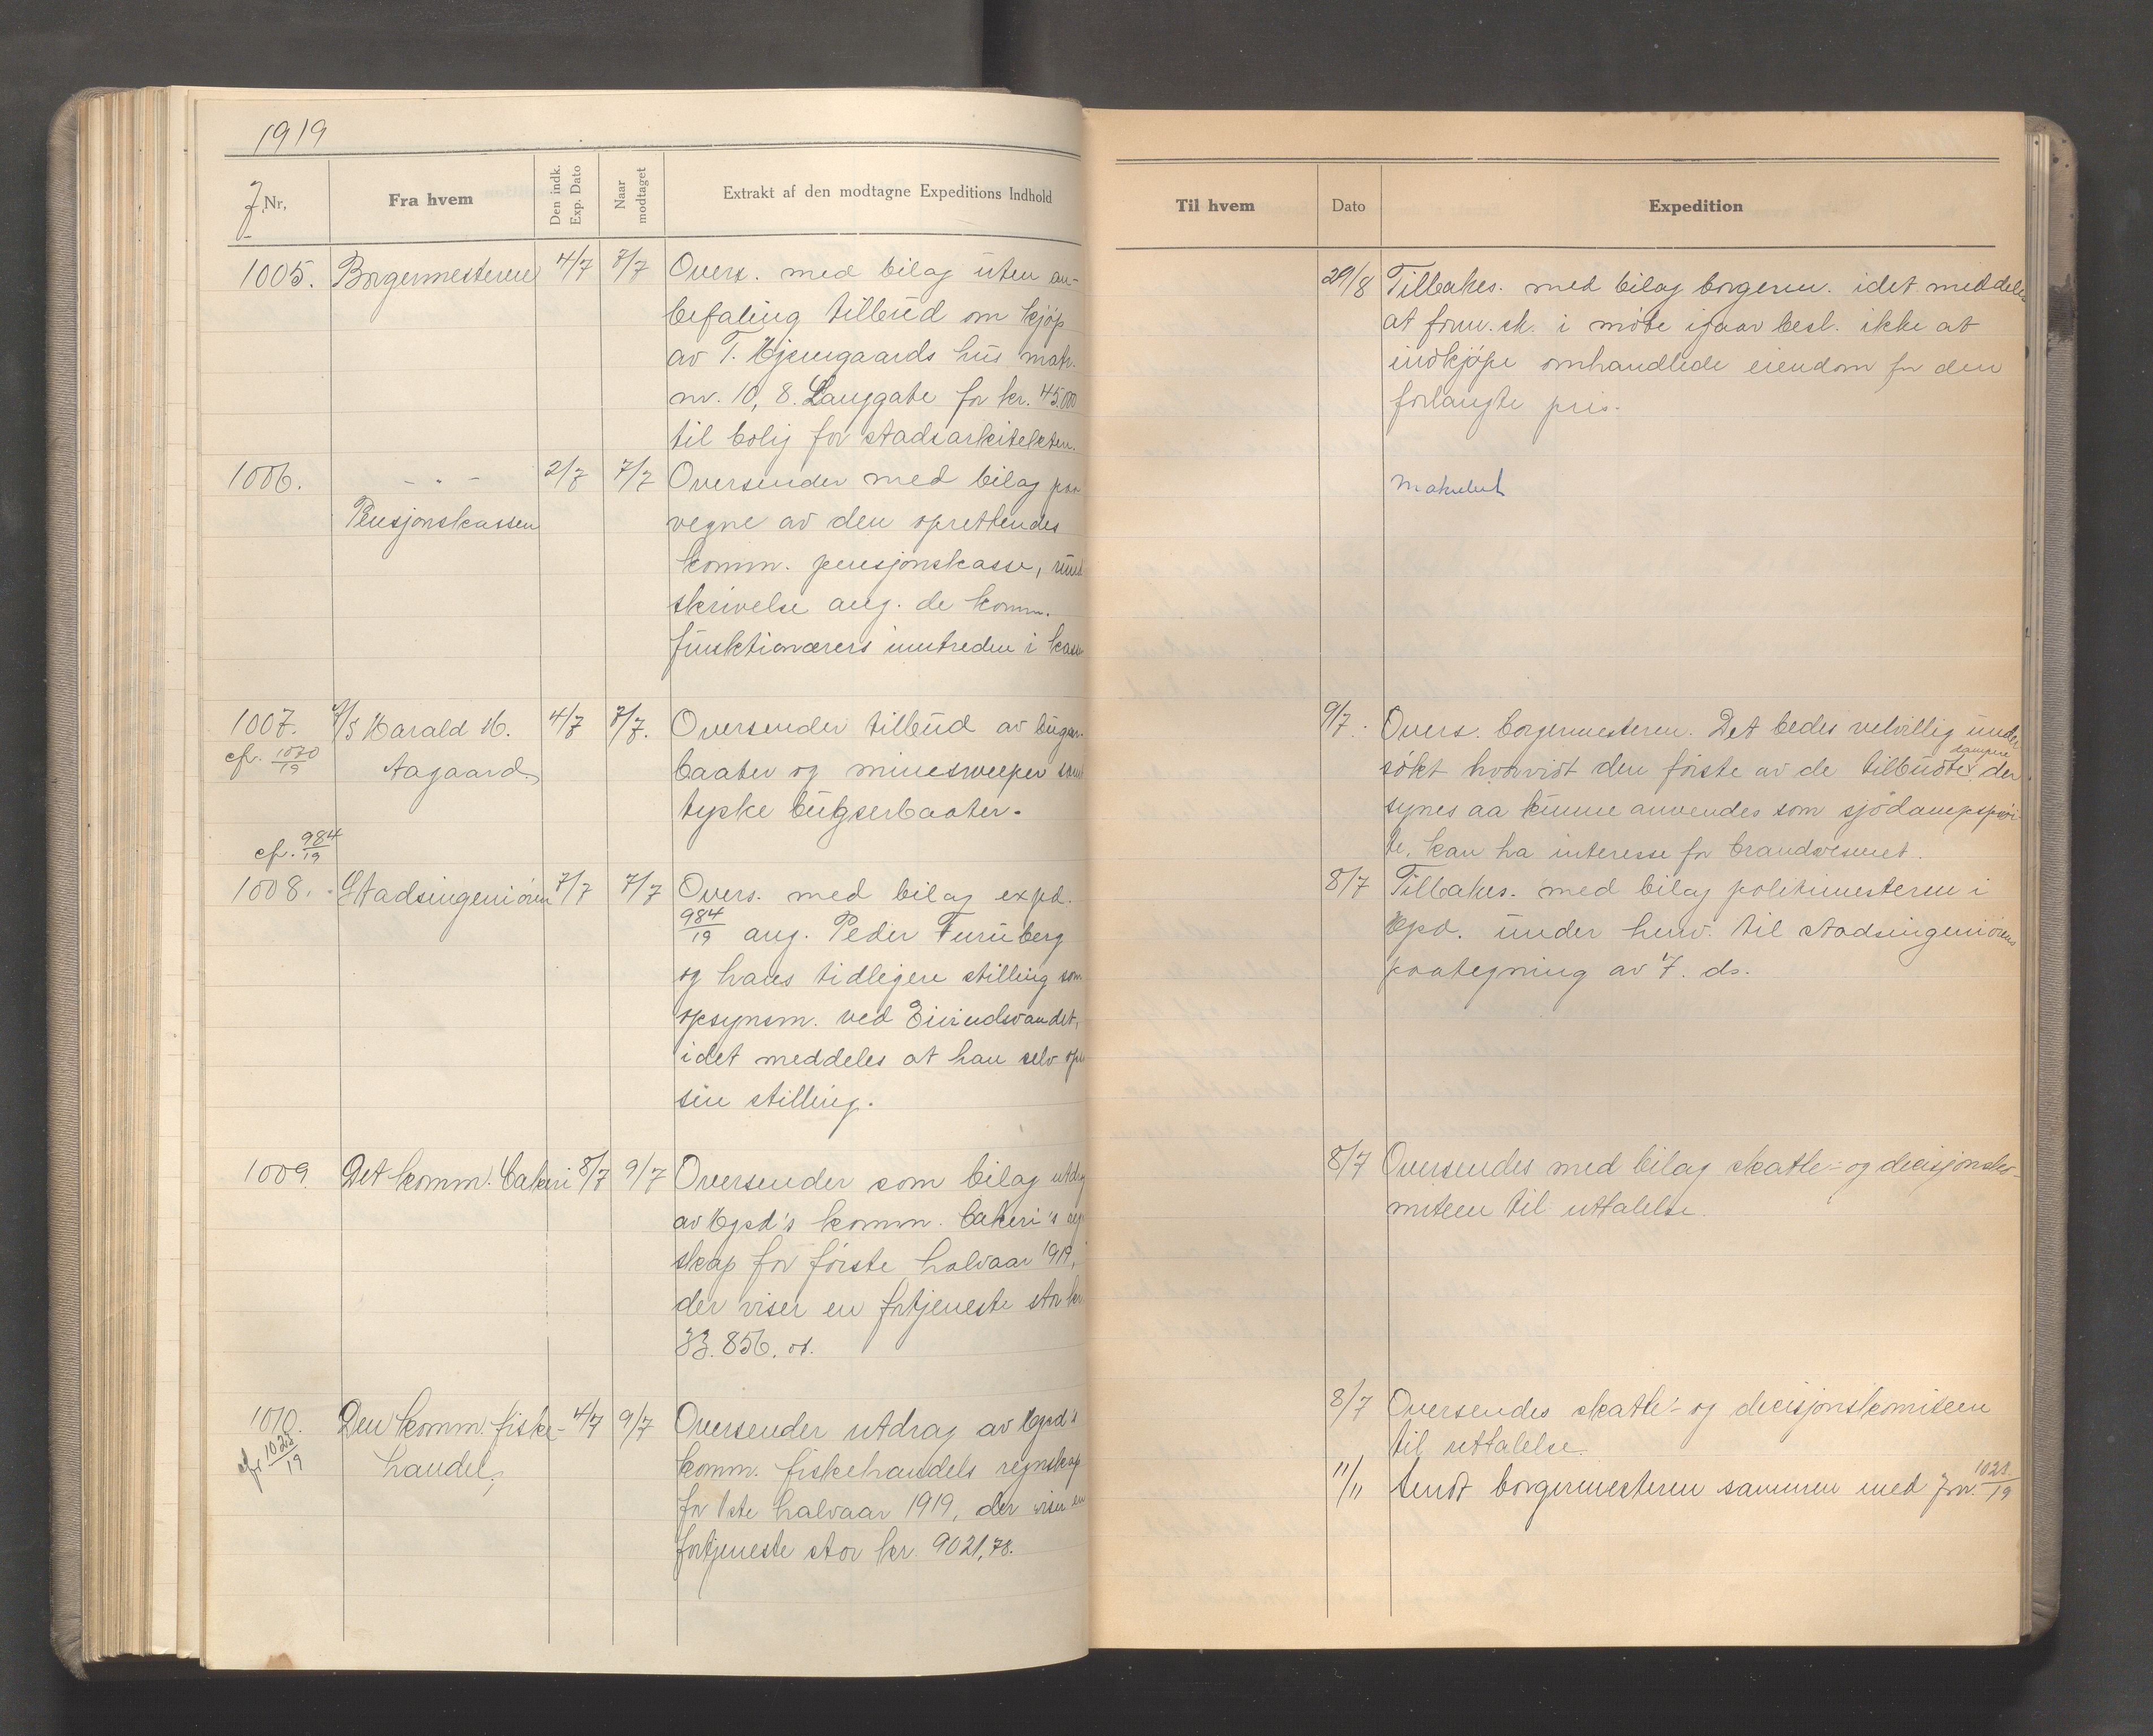 1919
J. Nr.
Fra hvem
Den indk. Exp. Dato
Naar modtaget
Extrakt af den modtagne Expeditions Indhold
1005. Borgermesteren 4/7 7/7 Overs. med bilag uten an-
befaling tilbud om kjøp
av T. Hjemgaards hus matr.
nr. 10, 8. Langgate for kr. 45.000
til bolig for stadsarkitekten.
1006. - " - 2/7 7/7 Oversender med bilag paa
Pensjonskassen vegne av den oprettendes
komm. pensjonskasse, rund
skrivelse ang. de komm.
funktionærers inntreden i
1007. A/S Harald H. 4/7 7/7. Oversender tilbud av
cfr. 1070/19 Aagaard, baater og minesweeper samt
tyske bugserbaater.
cfr. 984/19
1008. Stadsingeniøren 7/7 7/7 Overs. med bilag expd.
984/19 ang. Peder Furuberg
og hans tidligere stilling som
opsynsm. ved Eivindsvandet,
idet meddeles at han selv
sin stilling.
1009. Det komm. bakeri 8/7 9/7 Oversender som bilag utdrag
av Hgsd's komm. bakeri's
skap for første halvaar 1919,
der viser en fortjeneste stor kr
33.856, 01.
1010. Den komm. fiske- 4/7 9/7 Oversender utdrag av Hgsd's
cfr handel, komm. fiskehandels regnskap
for 1ste halvaar 1919, der viser en
fortjeneste stor kr. 9021,78.
Til hvem
Dato
Expedition
29/8 Tilbakes. med bilag borgerm. idet meddeles
at form.sk. i møte igaar besl. ikke at
indkjøpe omhandlede eiendom for den
forlangte pris.
Makulert
9/7. Overs. borgermesteren. Det bedes velvillig under
søkt hvorvidt den første av de tilbudte dampere der
synes aa kunne anvendes som sjødampsprøi-
te, kan ha interesse for brandvesenet.
8/7 Tilbakes. med bilag politimesteren i
Hgsd. under henv. til stadsingeniørens
paategning av 7. ds.
8/7 Oversendes med bilag skatte- og decisjonsko-
miteen til uttalelse.
8/7 Oversendes skatte- og decisjonskomiteen
til uttalelse.
11/11 Sendt borgermesteren sammen med Jnr.